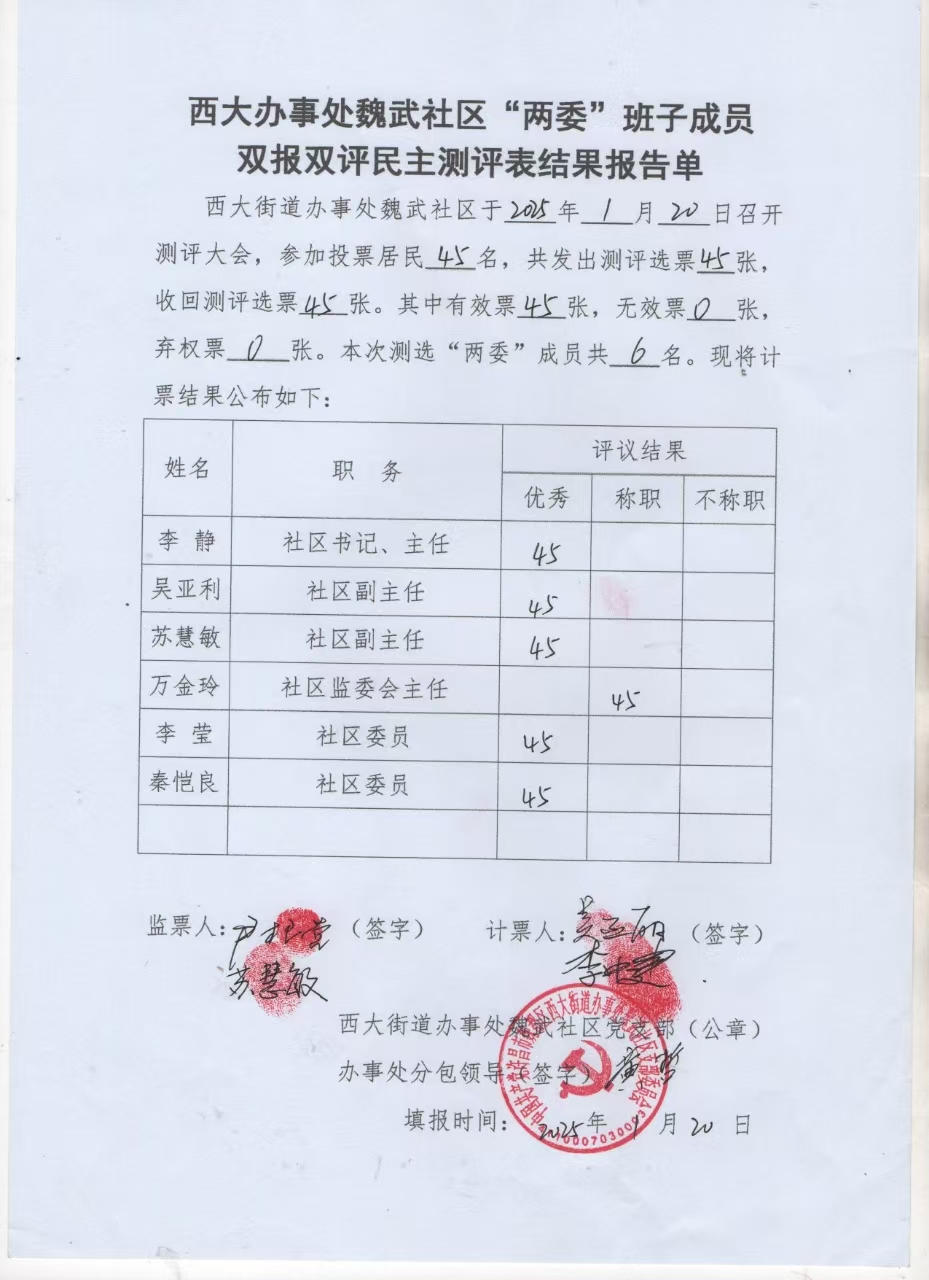 西大办事处魏武社区“两委”班子成员
双报双评民主测评表结果报告单
西大街道办事处魏武社区于2025年1月20日召开
测评大会，参加投票居民45名，共发出测评选票45张，
收回测评选票45张。其中有效票45张，无效票0张，
弃权票0张。本次测选“两委”成员共6名。现将计
票结果公布如下：
姓名 职 务 评议结果
优秀 称职 不称职
李 静 社区书记、主任 45
吴亚利 社区副主任 45
苏慧敏 社区副主任 45
万金玲 社区监委会主任 45
李 莹 社区委员 45
秦恺良 社区委员 45
监票人： （签字） 计票人： （签字）
苏慧敏
西大街道办事处魏武社区党支部（公章）
办事处分包领导（签字）
填报时间：2025年1月20日